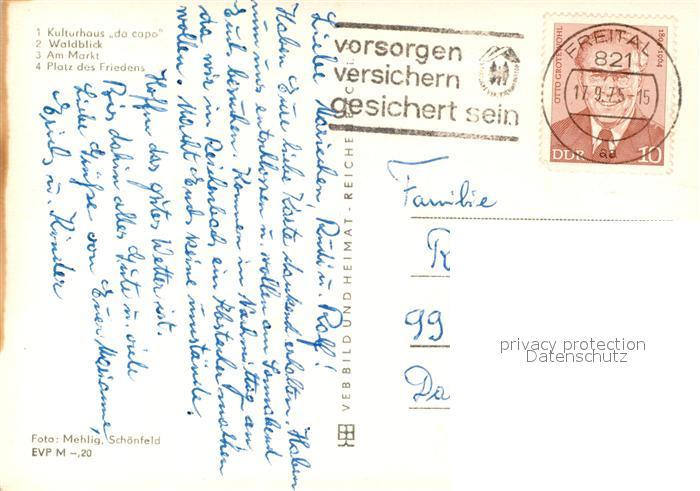 1 Kulturhaus „da capo"
2 Waldblick
3 Am Markt
4 Platz des Friedens
Liebe Mariechen, Rudi u. Rolf!
Haben Eure liebe Karte dankend erhalten. Haben
nun uns entschlossen u. wollen am Sonnabend
Euch besuchen. Kommen im Nachmittag an
da wir in Reichenbach ein Abstecher machen
wollen. Macht Euch keine umstände.
Hoffen das gutes Wetter ist.
Bis dahin alles Gute u. viele
Liebe Grüße von Eurer Marianne,
Erich u. Kinder
Foto: Mehlig, Schönfeld
EVP M –,20
VEB BILD UND HEIMAT - REICHE
vorsorgen
versichern
gesichert sein
FREITAL
821
17.9.75-15
aa
OTTO GROTEWOHL
1894-1964
DDR 10
Familie
99
Da
privacy protection
Datenschutz